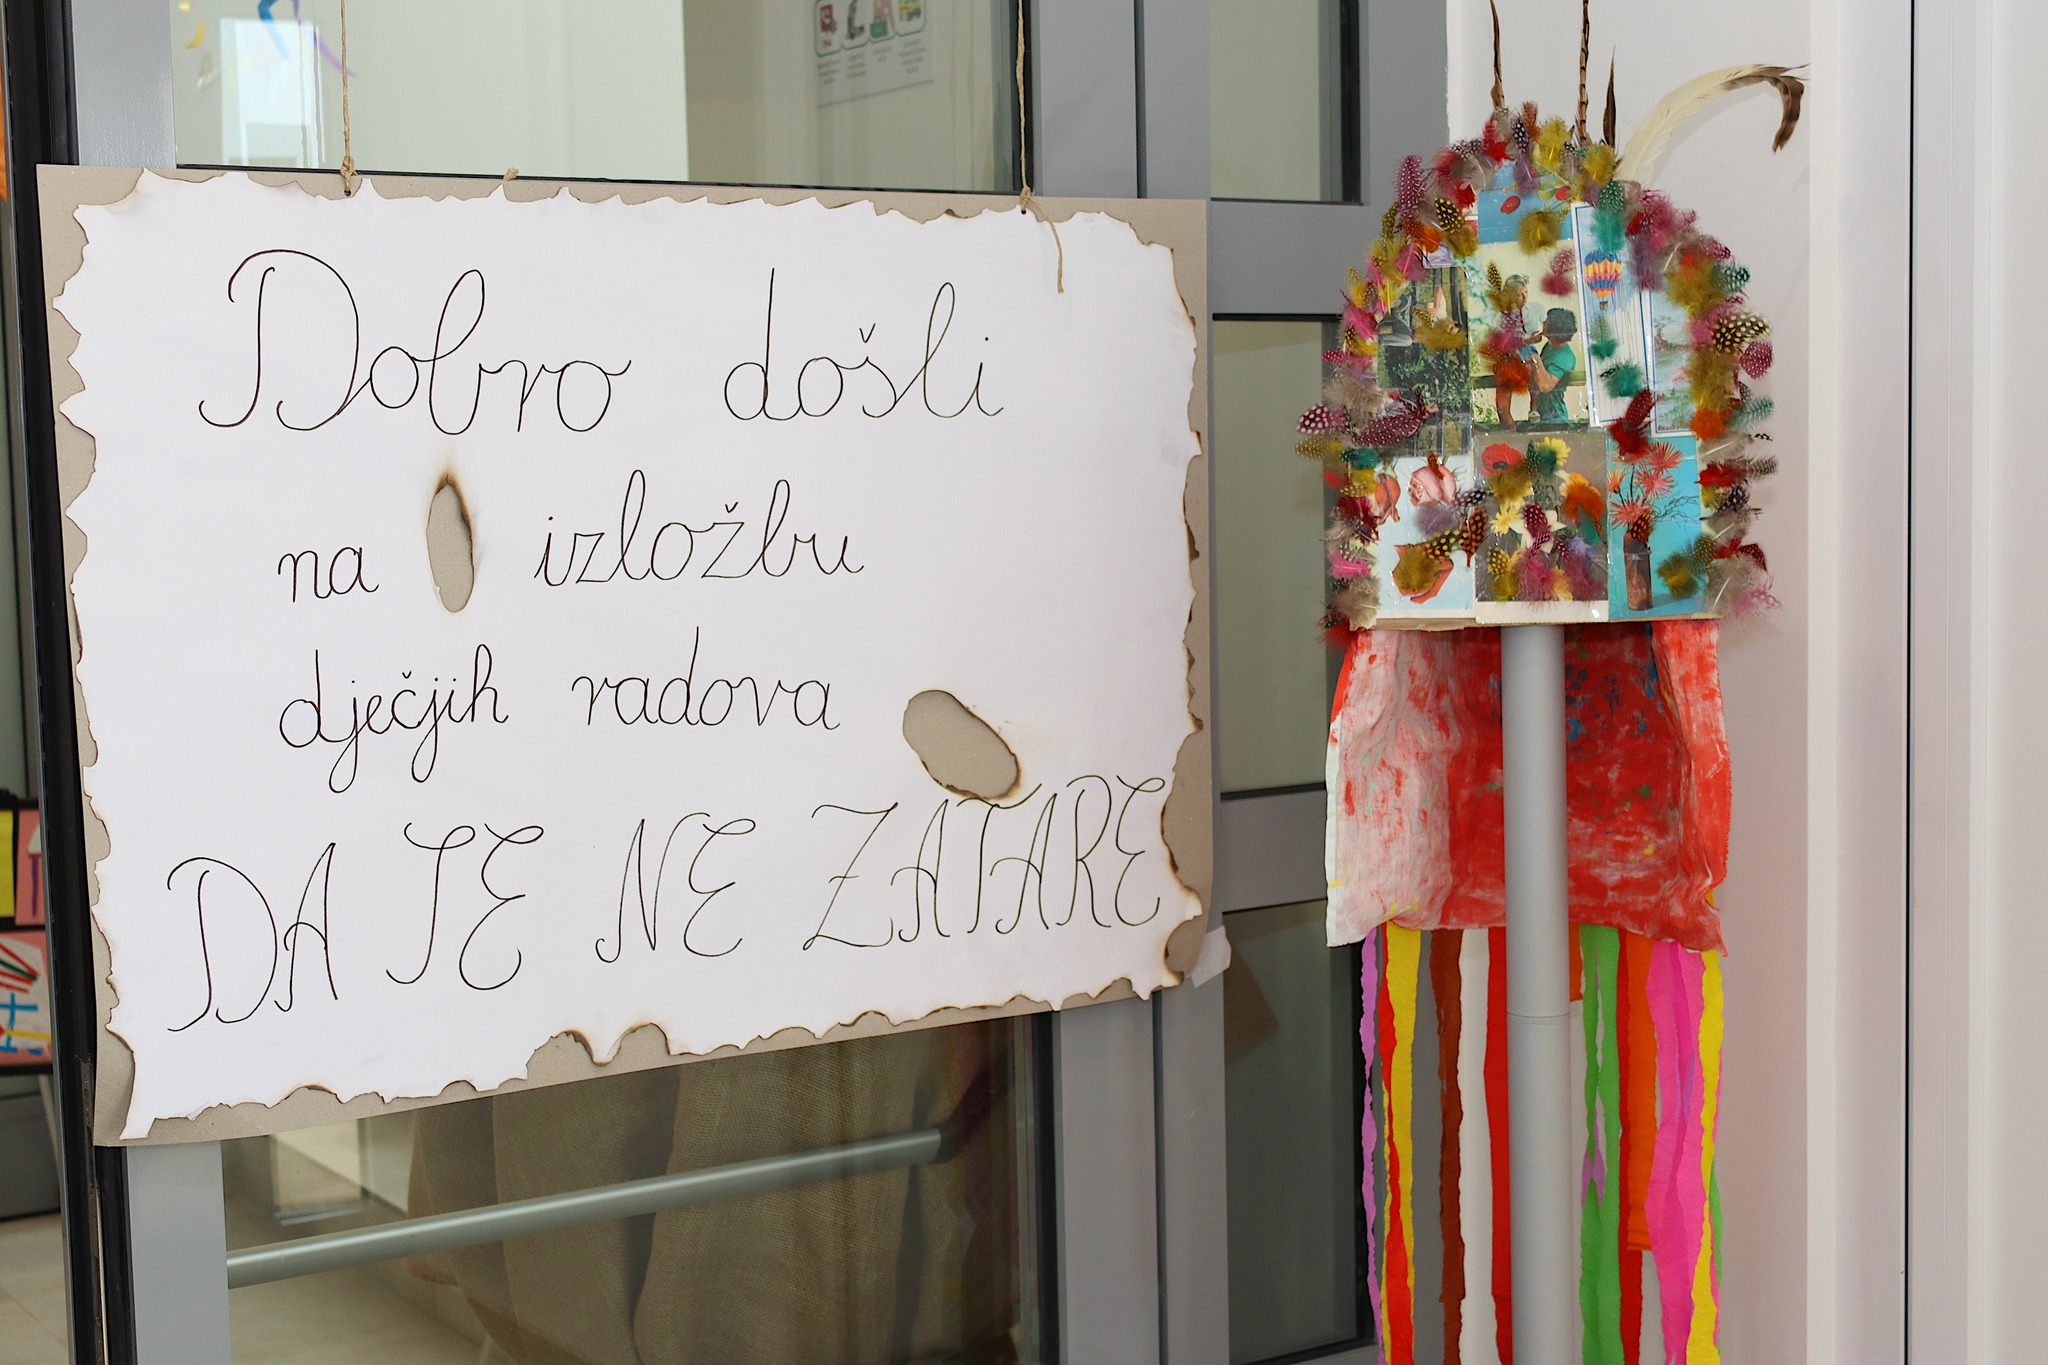 Dobro došli
na izložbu
dječjih radova
DA TE NE ZATARE